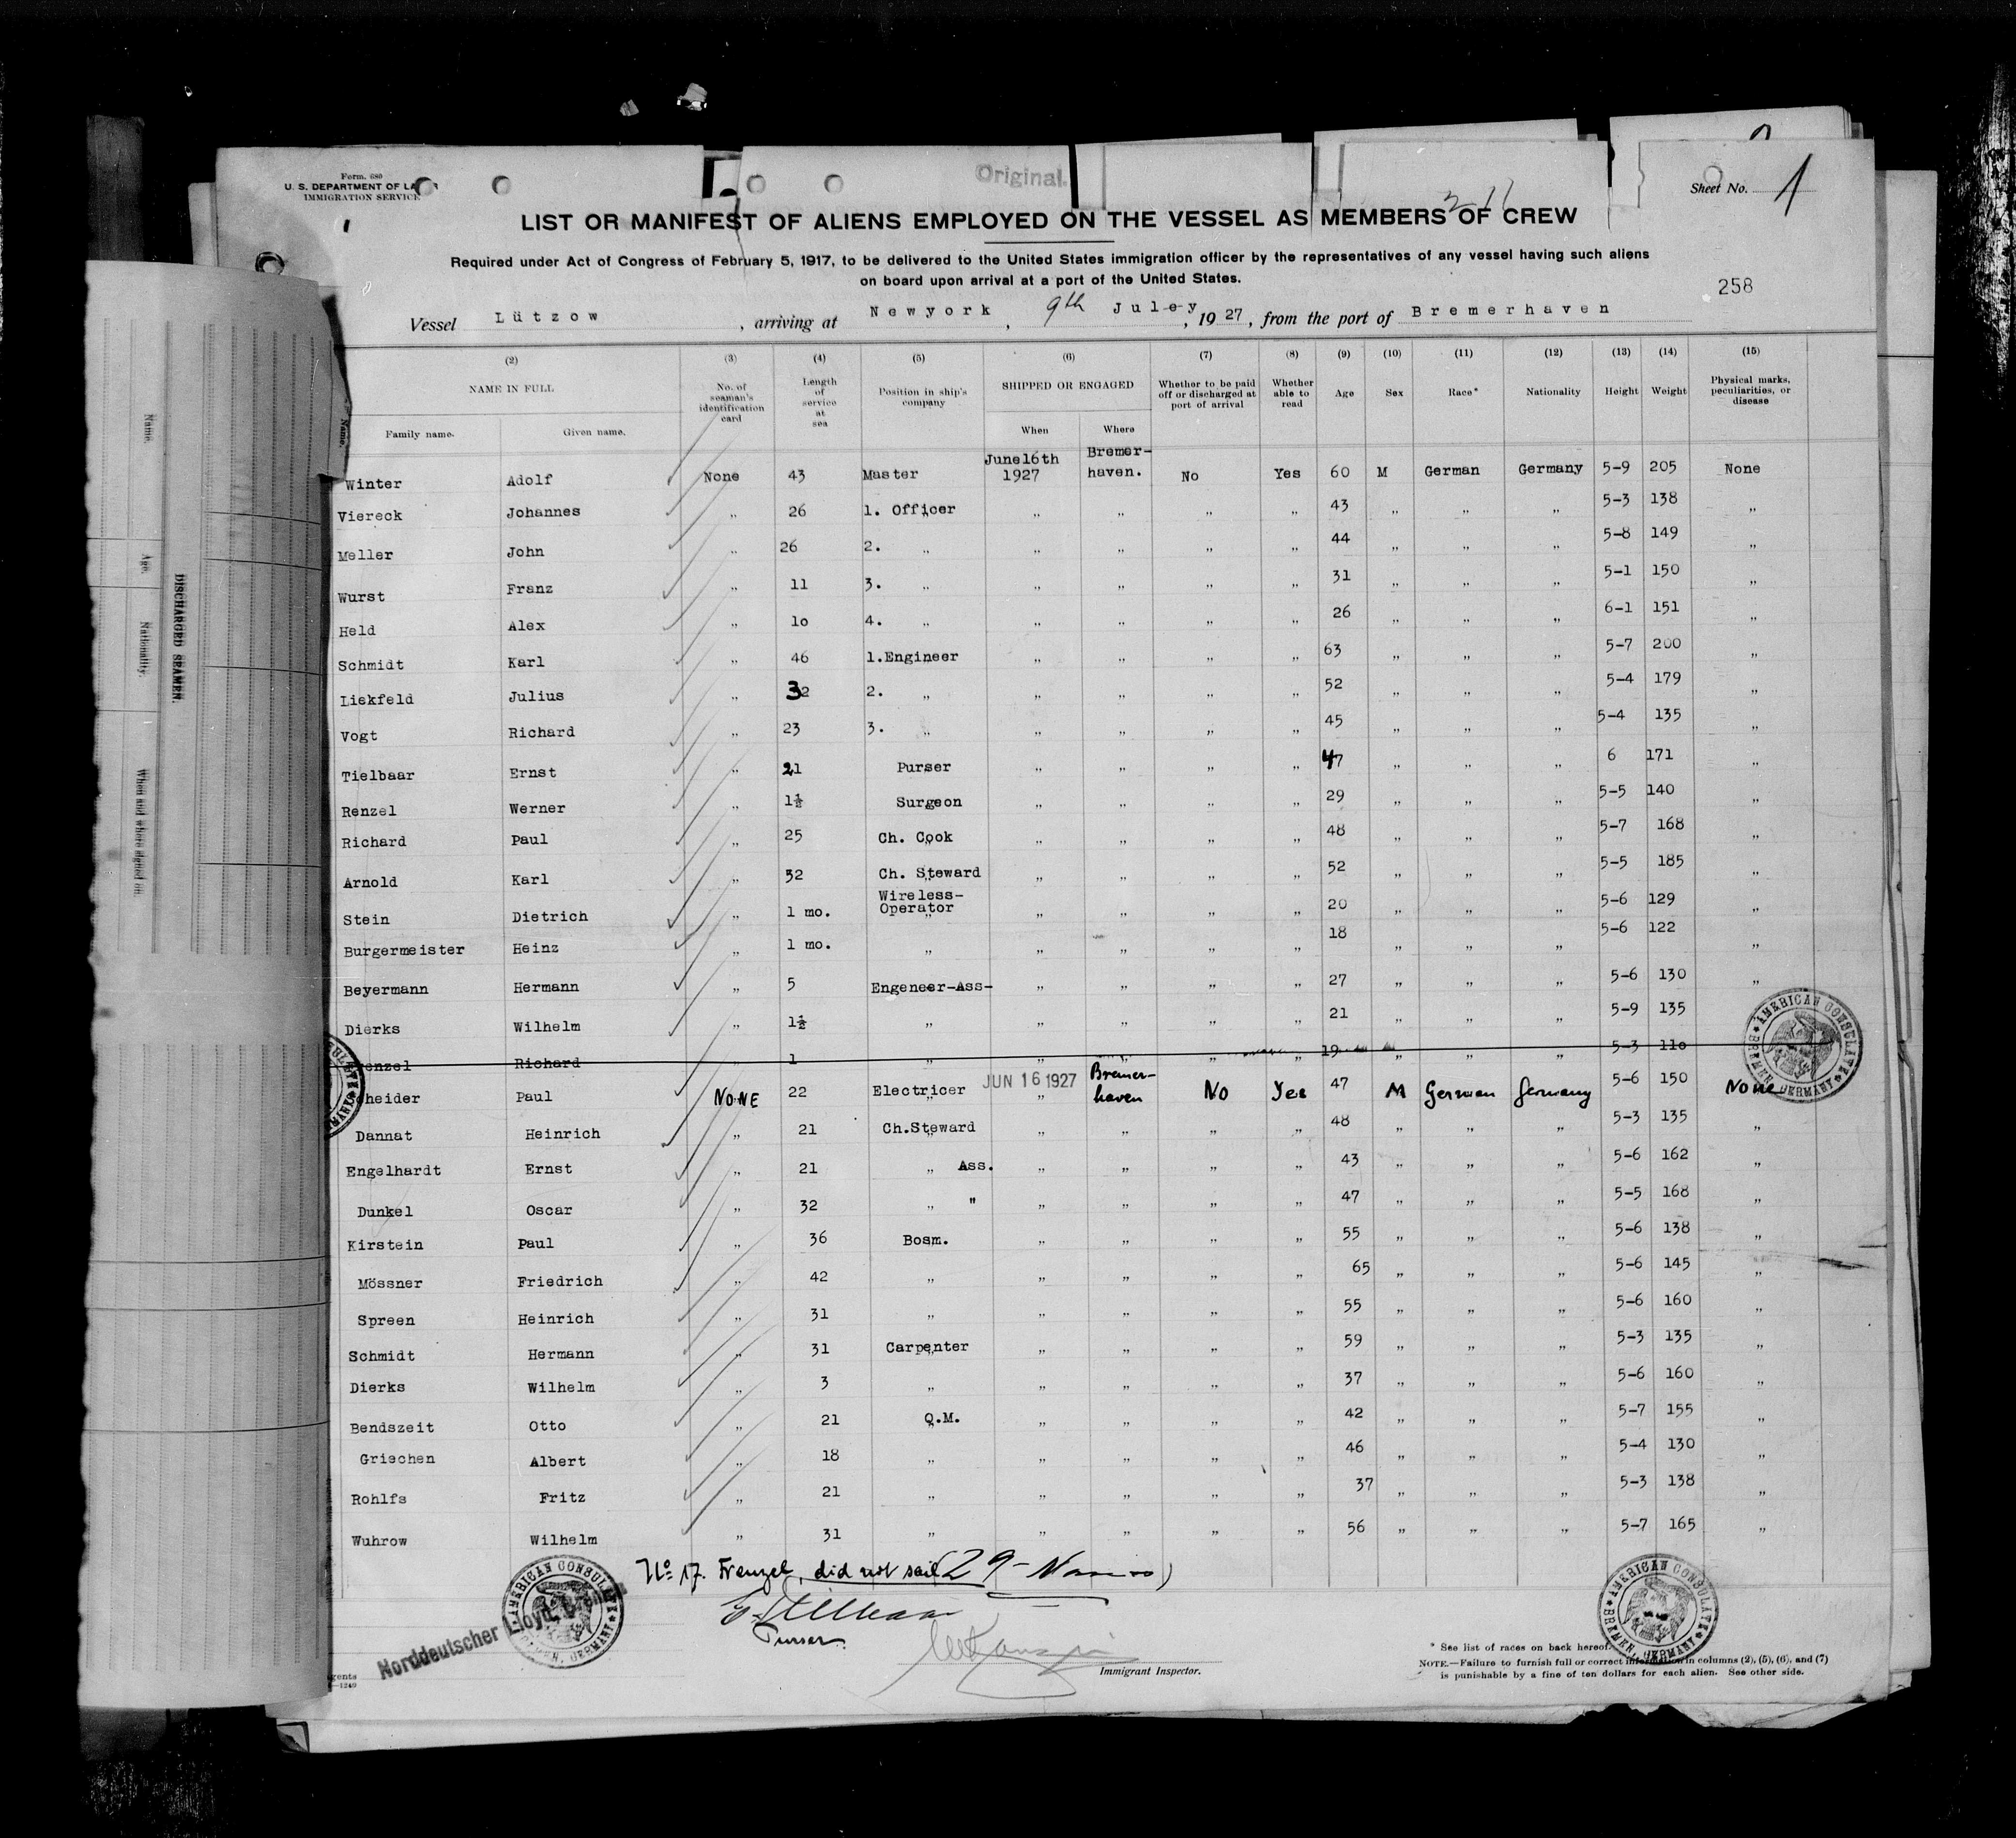 Original.
Form. 680
U. S. DEPARTMENT OF
IMMIGRATION SERVICE
Sheet No. 1
LIST OR MANIFEST OF ALIENS EMPLOYED ON THE VESSEL AS MEMBERS OF CREW
Required under Act of Congress of February 5, 1917, to be delivered to the United States immigration officer by the representatives of any vessel having such aliens
on board upon arrival at a port of the United States.
258
Vessel Lützow, arriving at Newyork, 9th Juley, 1927, from the port of Bremerhaven
(2) (3) (4) (5) (6) (7) (8) (9) (10) (11) (12) (13) (14) (15)
NAME IN FULL No. of seaman's identification card Length of service at sea Position in ship's company SHIPPED OR ENGAGED Whether to be paid off or discharged at port of arrival Whether able to read Age Sex Race* Nationality Height Weight Physical marks, peculiarities, or disease
Family name. Given name. When Where
Winter Adolf None 43 Master June16th 1927 Bremer-haven. No Yes 60 M German Germany 5-9 205 None
Viereck Johannes „ 26 1. Officer „ „ „ „ 43 „ „ „ 5-3 138 „
Meller John „ 26 2. „ „ „ „ „ 44 „ „ „ 5-8 149 „
Wurst Franz „ 11 3. „ „ „ „ „ 31 „ „ „ 5-1 150 „
Held Alex „ 1o 4. „ „ „ „ „ 26 „ „ „ 6-1 151 „
Schmidt Karl „ 46 1.Engineer „ „ „ „ 63 „ „ „ 5-7 200 „
Liekfeld Julius „ 32 2. „ „ „ „ „ 52 „ „ „ 5-4 179 „
Vogt Richard „ 23 3. „ „ „ „ „ 45 „ „ „ 5-4 135 „
Tielbaar Ernst „ 21 Purser „ „ „ „ 47 „ „ „ 6 171 „
Renzel Werner „ 1½ Surgeon „ „ „ „ 29 „ „ „ 5-5 140 „
Richard Paul „ 25 Ch. Cook „ „ „ „ 48 „ „ „ 5-7 168 „
Arnold Karl „ 32 Ch. Steward „ „ „ „ 52 „ „ „ 5-5 185 „
Stein Dietrich „ 1 mo. Wireless-Operator „ „ „ „ 20 „ „ „ 5-6 129 „
Burgermeister Heinz „ 1 mo. „ „ „ „ „ 18 „ „ „ 5-6 122 „
Beyermann Hermann „ 5 Engeneer-Ass- „ „ „ „ 27 „ „ „ 5-6 130 „
Dierks Wilhelm „ 1½ „ „ „ „ „ 21 „ „ „ 5-9 135 „
enzel Richard „ 1 „ „ „ „ „ 19 „ „ „ 5-3 11o
heider Paul NONE 22 Electricer JUN 16 1927 Bremer-haven No Yes 47 M German Germany 5-6 150 None
Dannat Heinrich „ 21 Ch.Steward „ „ „ „ 48 „ „ „ 5-3 135 „
Engelhardt Ernst „ 21 „ Ass. „ „ „ „ 43 „ „ „ 5-6 162 „
Dunkel Oscar „ 32 „ " „ „ „ „ 47 „ „ „ 5-5 168 „
Kirstein Paul „ 36 Bosm. „ „ „ „ 55 „ „ „ 5-6 138 „
Mössner Friedrich „ 42 „ „ „ „ „ 65 „ „ „ 5-6 145 „
Spreen Heinrich „ 31 „ „ „ „ „ 55 „ „ „ 5-6 160 „
Schmidt Hermann „ 31 Carpenter „ „ „ „ 59 „ „ „ 5-3 135 „
Dierks Wilhelm „ 3 „ „ „ „ „ 37 „ „ „ 5-6 160 „
Bendszeit Otto „ 21 Q.M. „ „ „ „ 42 „ „ „ 5-7 155 „
Grischen Albert „ 18 „ „ „ „ „ 46 „ „ „ 5-4 130 „
Rohlfs Fritz „ 21 „ „ „ „ „ 37 „ „ „ 5-3 138 „
Wuhrow Wilhelm „ 31 „ „ „ „ „ 56 „ „ „ 5-7 165 „
No 17. Frenzel, did not sail (29-
Purser.
Norddeutscher Lloyd,
AMERICAN CONSULATE
BREMEN, GERMANY
Immigrant Inspector.
* See list of races on back hereof.
NOTE.—Failure to furnish full or correct information in columns (2), (5), (6), and (7)
is punishable by a fine of ten dollars for each alien. See other side.
DISCHARGED SEAMEN.
Name.
Age.
Nationality.
When and where signed on.